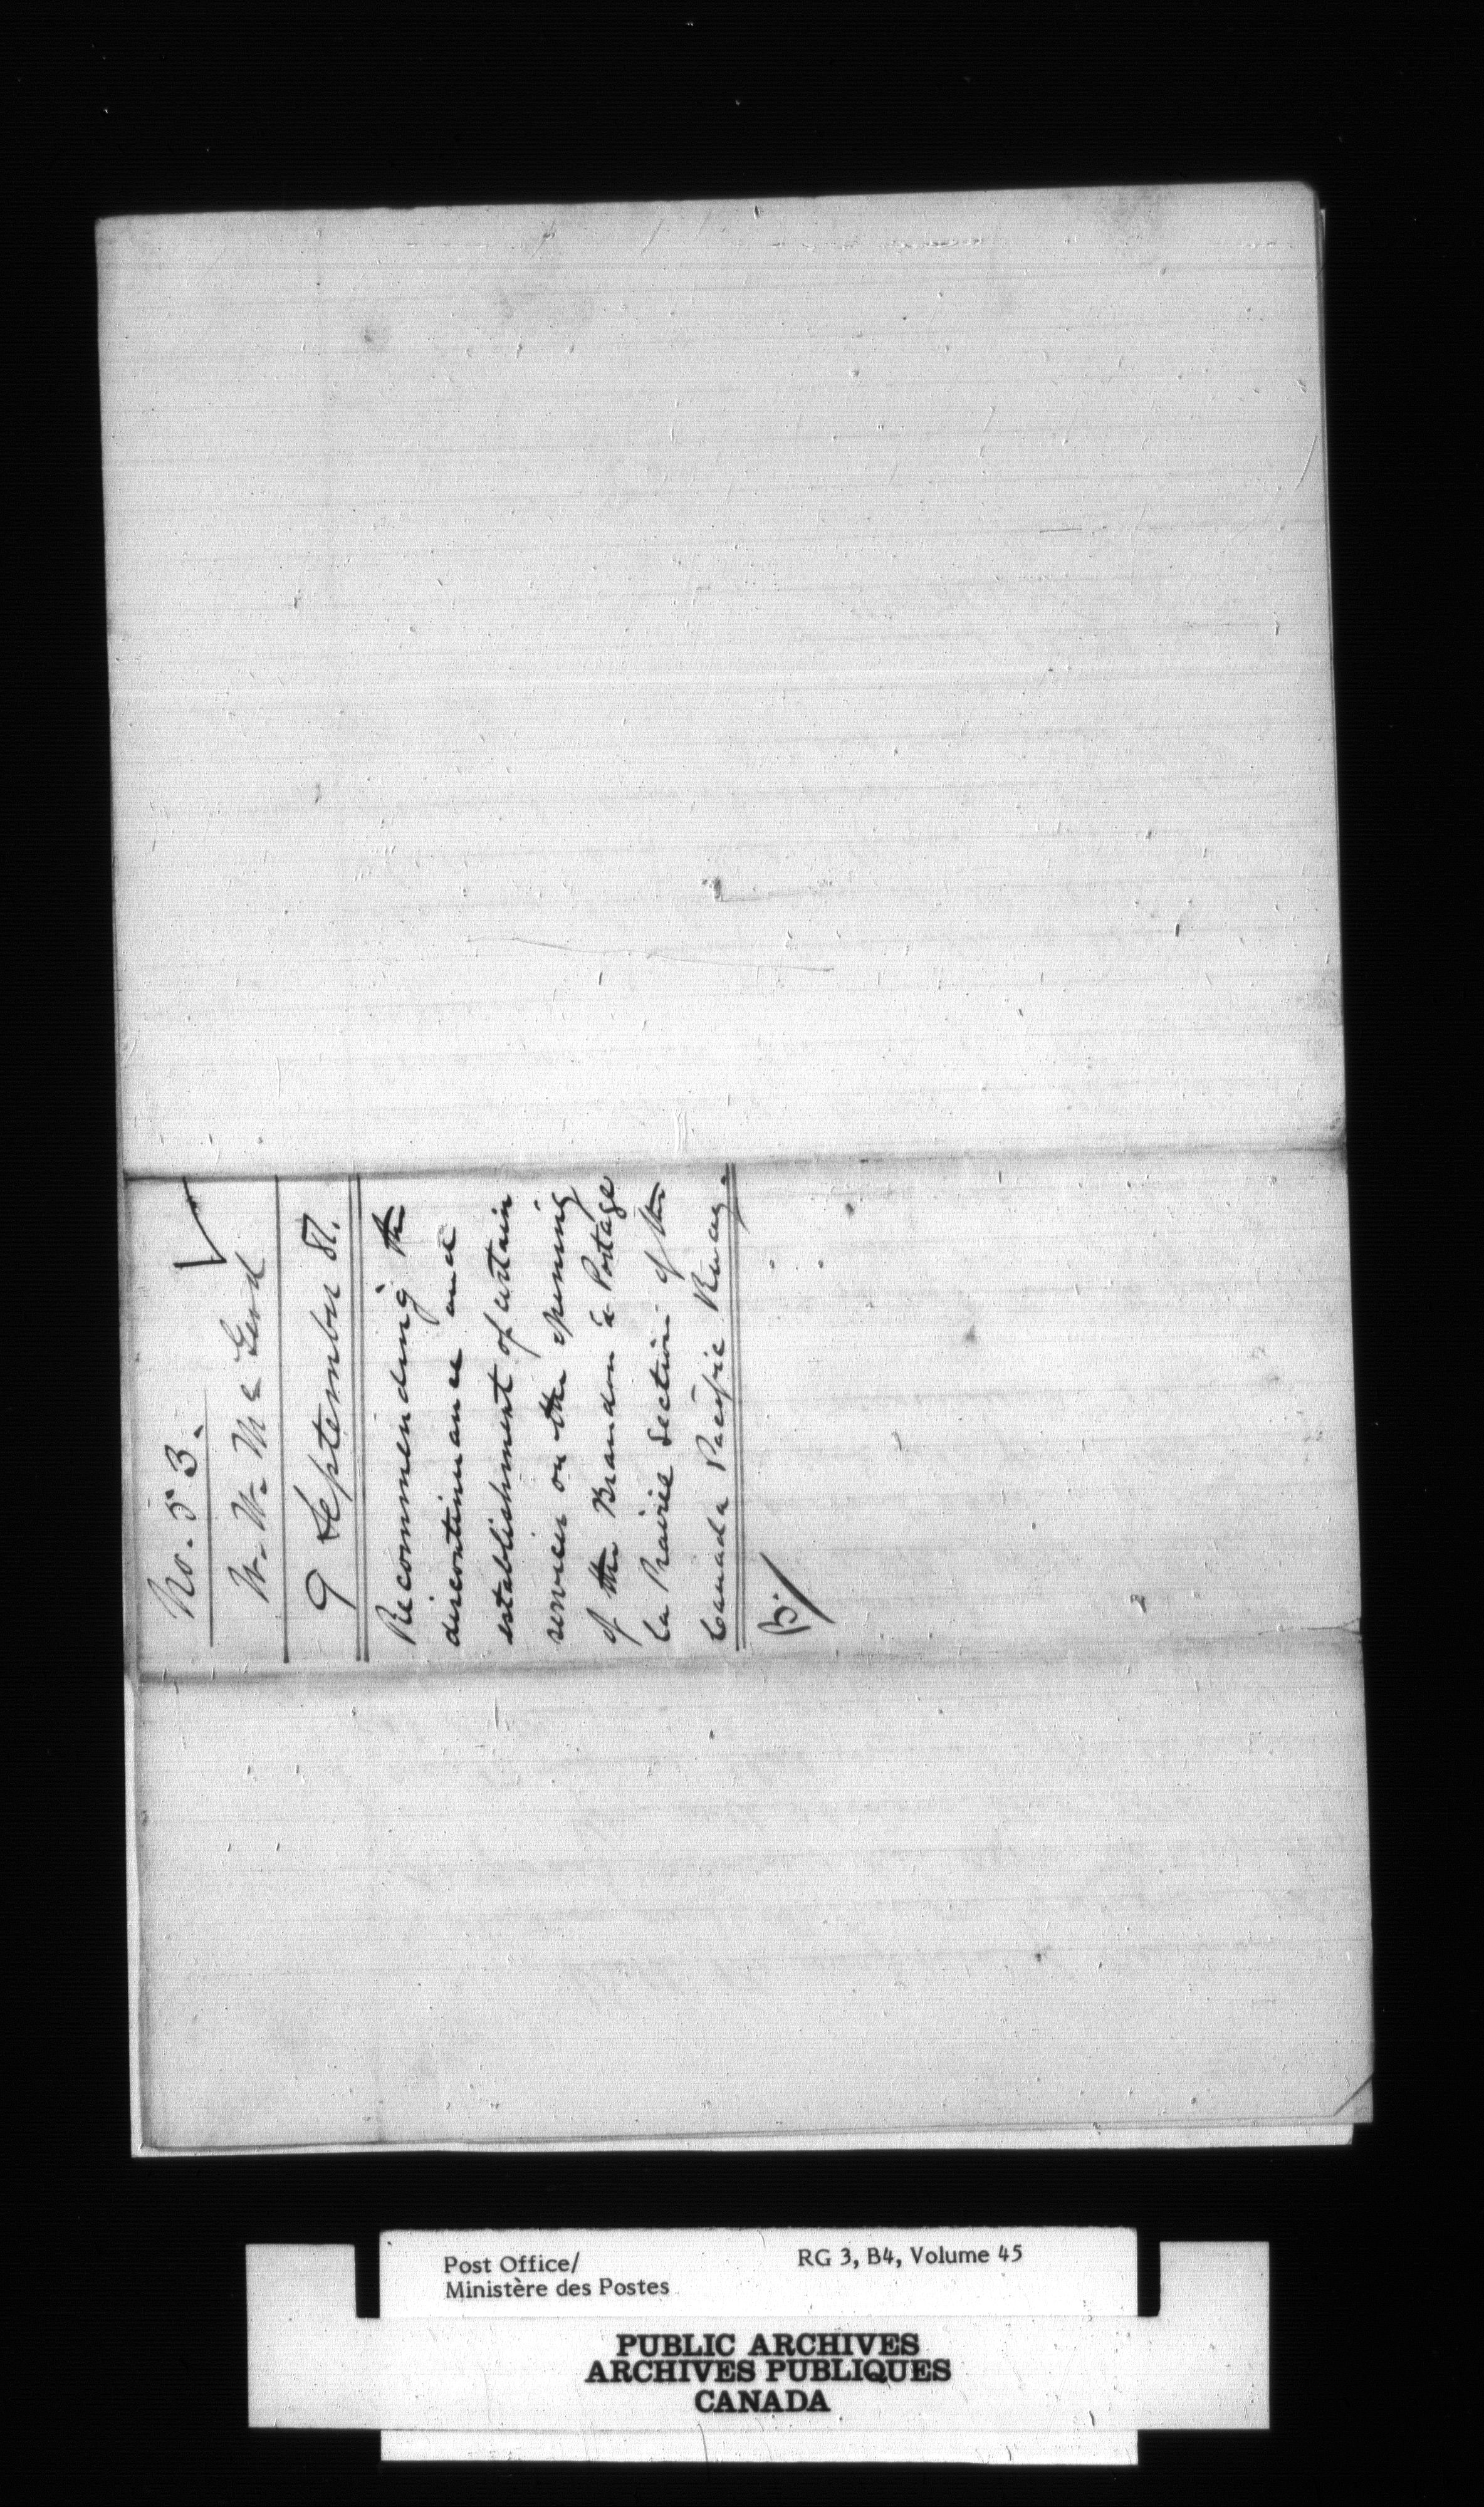 No. 53.
W. W. McLeod
9 September 81.
Recommending the
discontinuance and
establishment of certain
services on the opening
of the Brandon & Portage
la Prairie Section of the
Canada Pacific Rway.
B.
Post Office/
Ministère des Postes
RG 3, B4, Volume 45
PUBLIC ARCHIVES
ARCHIVES PUBLIQUES
CANADA